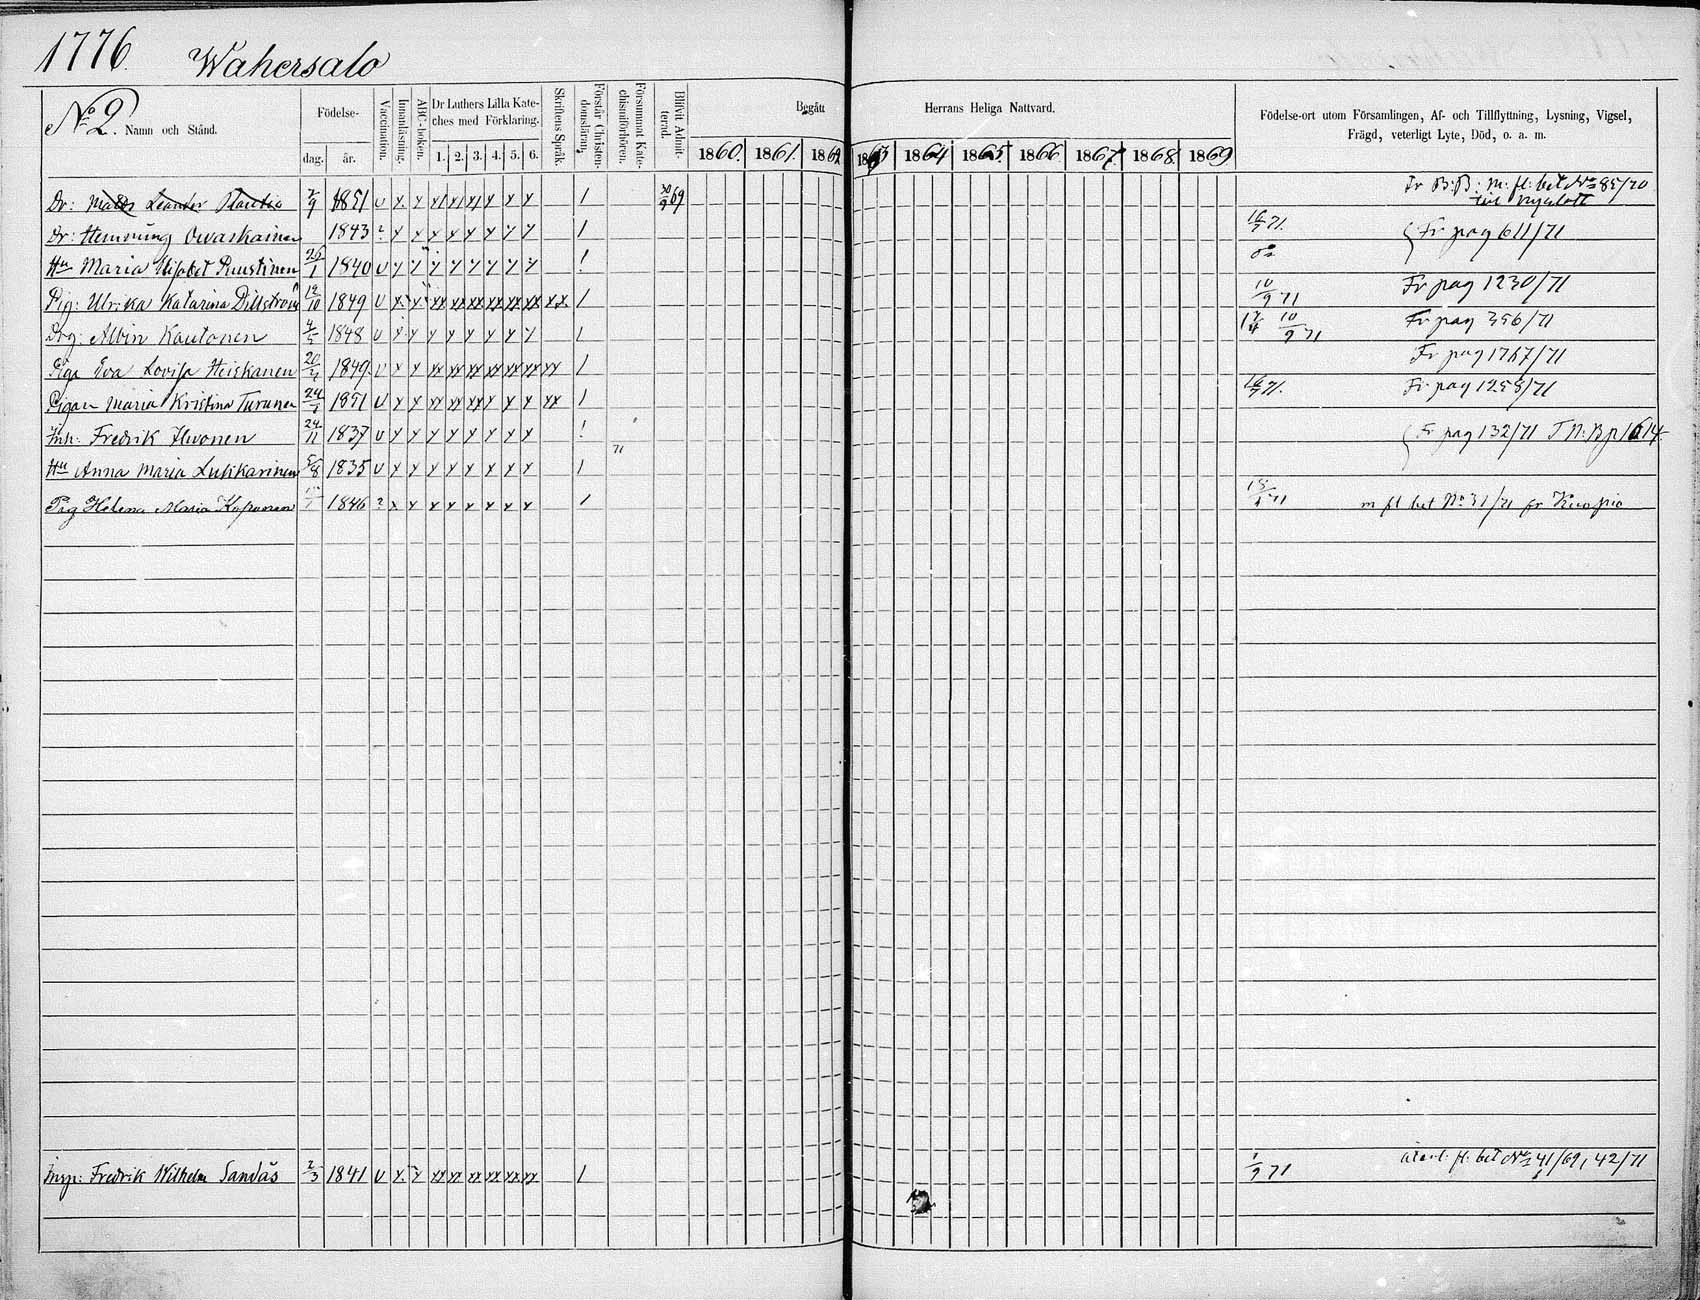 1776. Wahersalo
No 2. Namn och Stånd.
Födelse-
dag. år.
Vaccination.
Innanläsning.
ABC-boken.
Dr Luthers Lilla Kate-
ches med Förklaring.
1. 2. 3. 4. 5. 6.
Skriftens Språk.
Förstår Christen-
domsläran.
Försummat Kate-
chismiförhören.
Blifvit Admit-
terad.
Begått Herrans Heliga Nattvard.
1860. 1861. 1862 1863 1864 1865. 1866 1867. 1868. 1869
Födelse-ort utom Församlingen, Af- och Tillflyttning, Lysning, Vigsel,
Frägd, veterligt Lyte, Död, o. a. m.
Dr: Matts Leander 2/9 1851 v x x x/ x/ x/ x x x / 30/9 69 fr B:B: m: fl: bet No 85/70
till Nyslott
Dr: Hemming Owaskainen 1843 ? x x x x x x x x / 71. Fr pag 611/71
Hu Maria Elisabet Puustinen 26/1 1840 v x x x x x x x x /
Pig: Ulrika Katarina 12/10 1849 v x x xx xx xx xx xx xx xx / 10/9 71 Fr pag 1230/71
Drg: Albin Kautonen 4/5 1848 v x x x x x x x x / 10/9 71 Fr pag 356/71
Piga Eva Lovisa Heiskanen 1849. v x x xx xx xx xx xx xx xx / Fr pag 1767/71
Pigan Maria Kristina Turunen 1851 v x x xx xx xx x x x xx / 71. Fr pag 1258/71
Inh: Fredrik Ihvonen 24/11 1837 v x x x x x x x x / Fr pag 132/71 T N: B p 1614
71
Hu Anna Maria Lukkarinen 5/8 1835 v x x x x x x x x /
Pig Helena Maria Koponen 1846 ? x x x x x x x x / 71 m fl bet No 31/71 fr Kuopio
Insp: Fredrik Wilhelm Sandås 2/3 1841 v x x xx xx xx xx xx xx / 1/9 71 fl: bet No 41/69, 42/71